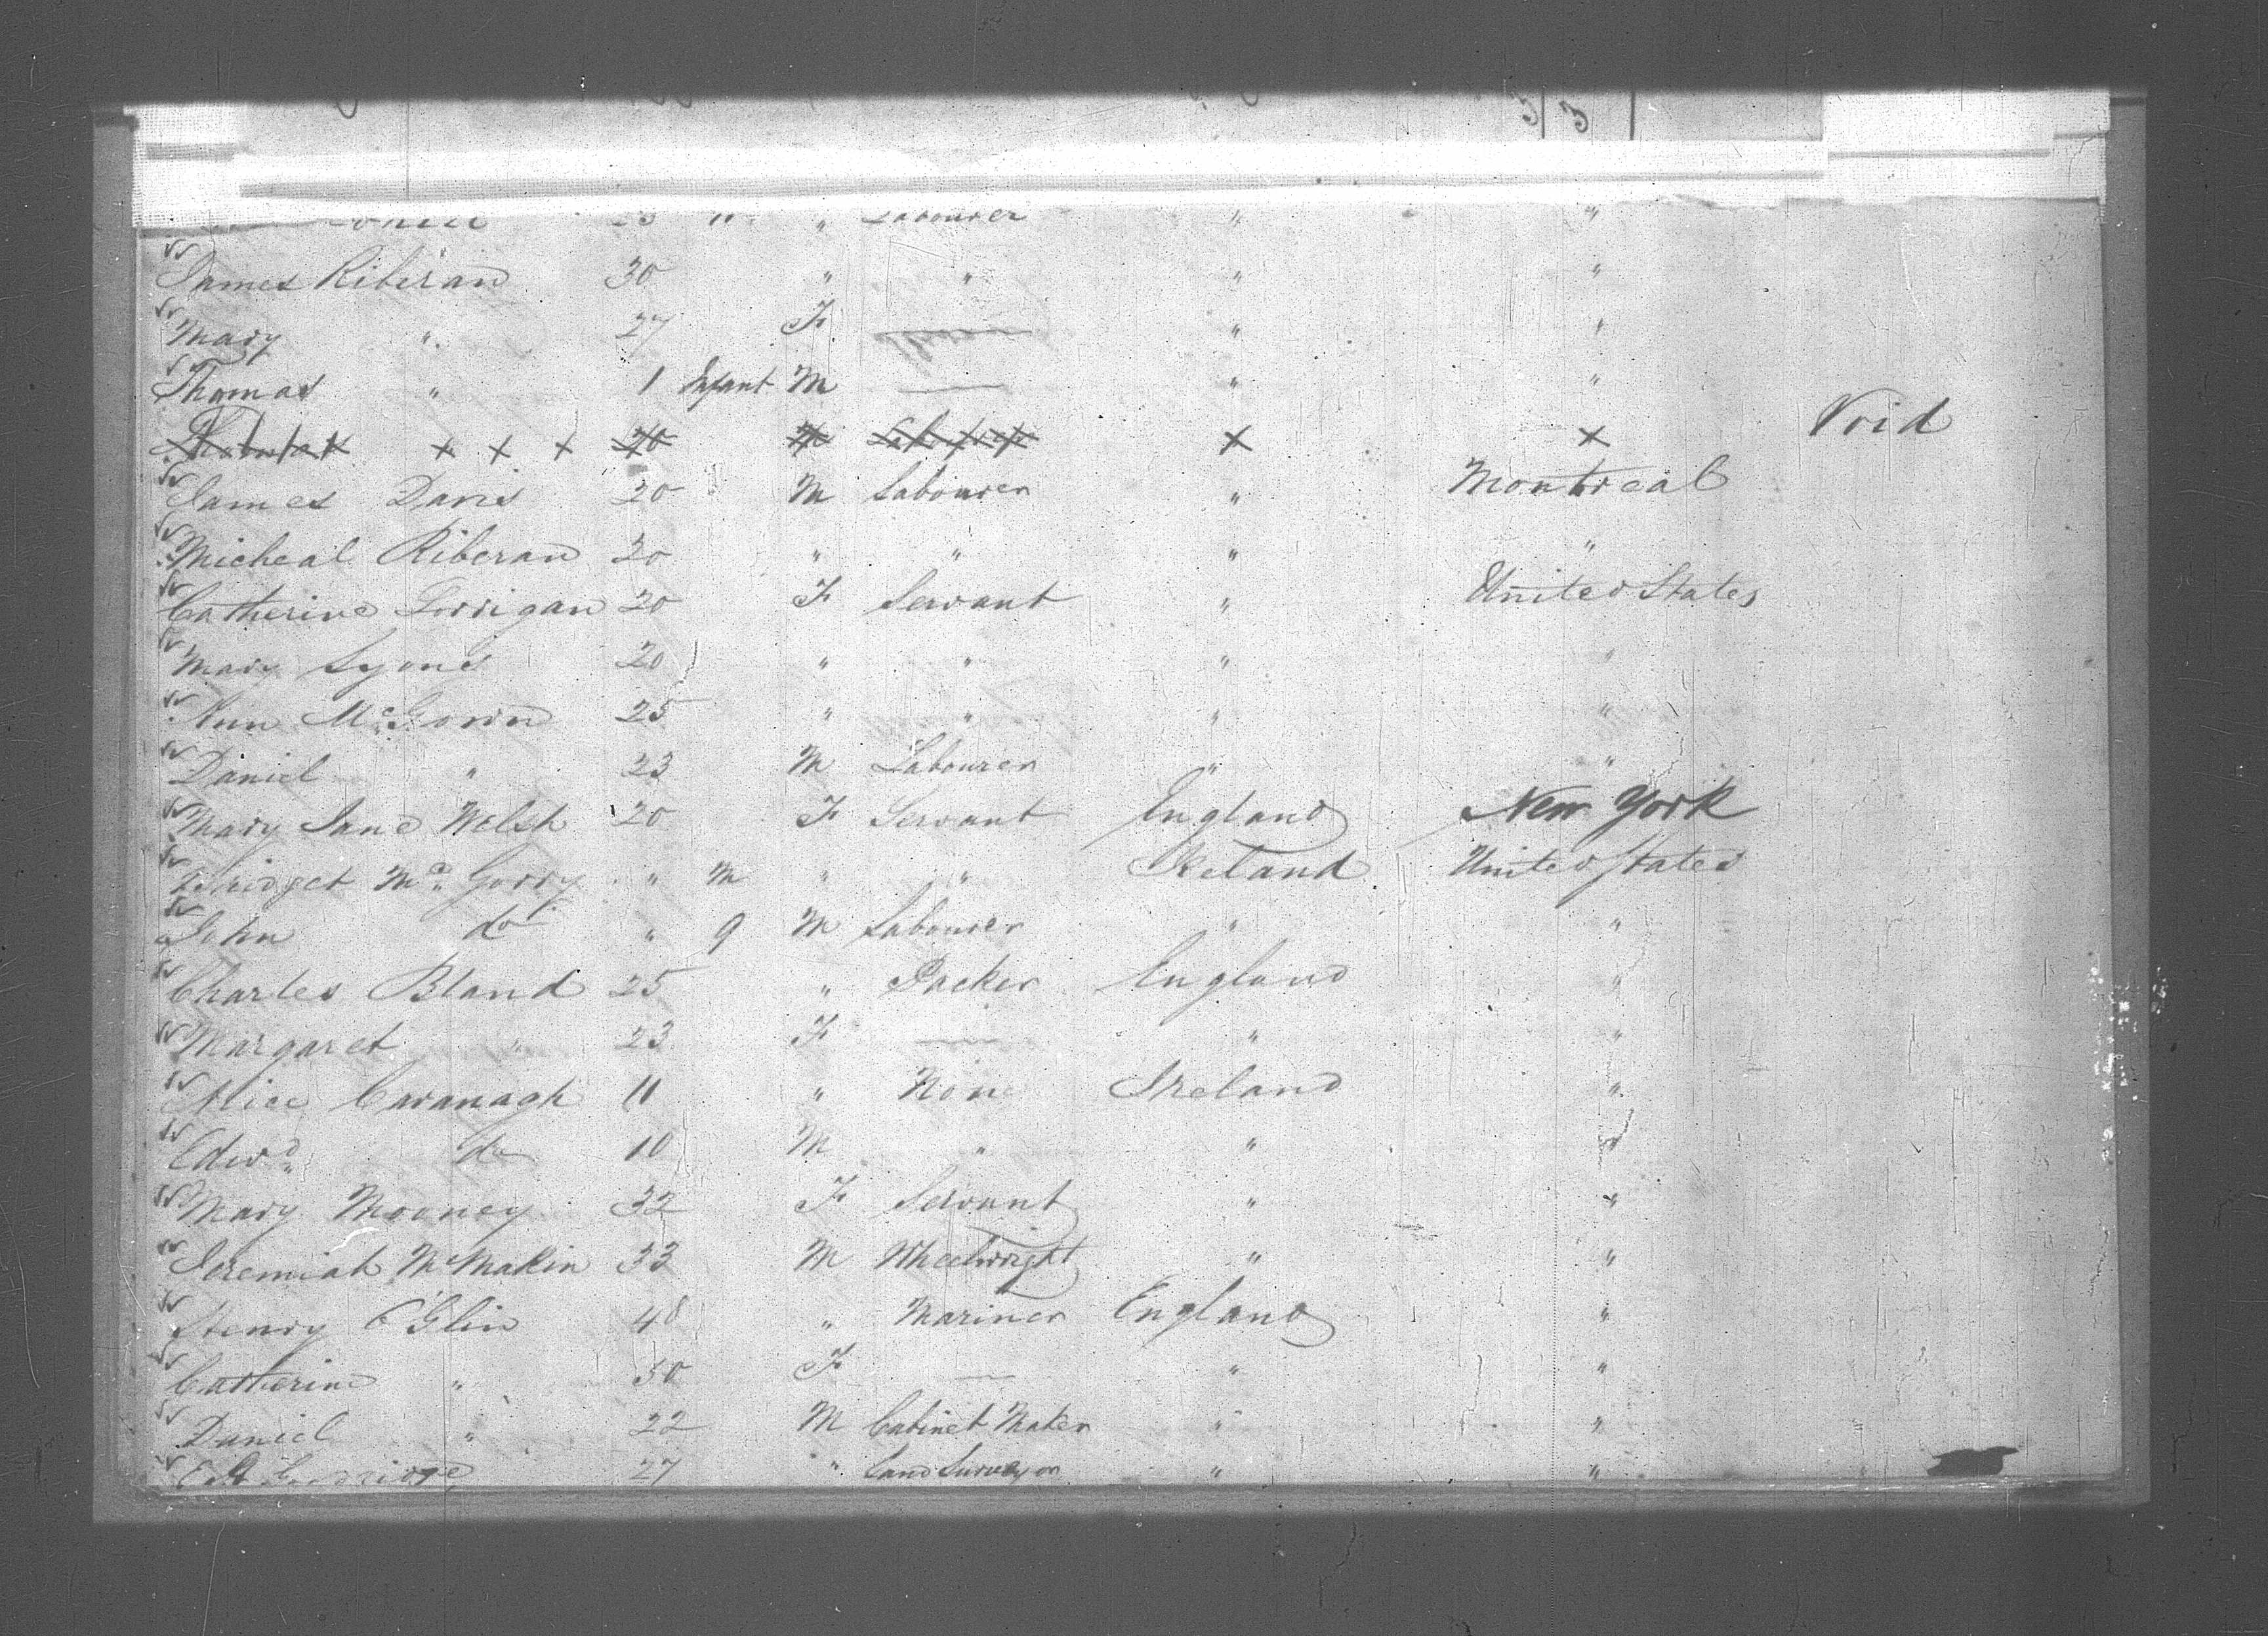 " " Labourer " "
James Riberan 30 " " " "
Mary " 27 F " "
Thomas " 1 Infant M — " "
x x x 20 M Labourer x x Void
James Davis 20 M Labourer " Montreal
Micheal Riberan 20 " " " "
Catherine Corrigan 20 F Servant " United States
Mary Lyons 20 " " " "
Ann McGowin 25 " " " "
Daniel " 23 M Labourer " "
Mary Jane Welsh 20 F Servant England New York
Bridget Mc. Gorry " M " " Ireland United States
John do " 9 M Labourer " "
Charles Bland 25 " Packer England "
Margaret " 23 F — " "
Alice Cavanagh 11 " None Ireland "
Edwd. do 10 M " " "
Mary Mooney 32 F Servant " "
Jeremiah McMakin 33 M Wheelwright " "
Henry O'Glin 48 " Mariner England "
Catherine " 50 F — " "
Daniel " 22 M Cabinet Maker " "
27 " Land Surveyor " "